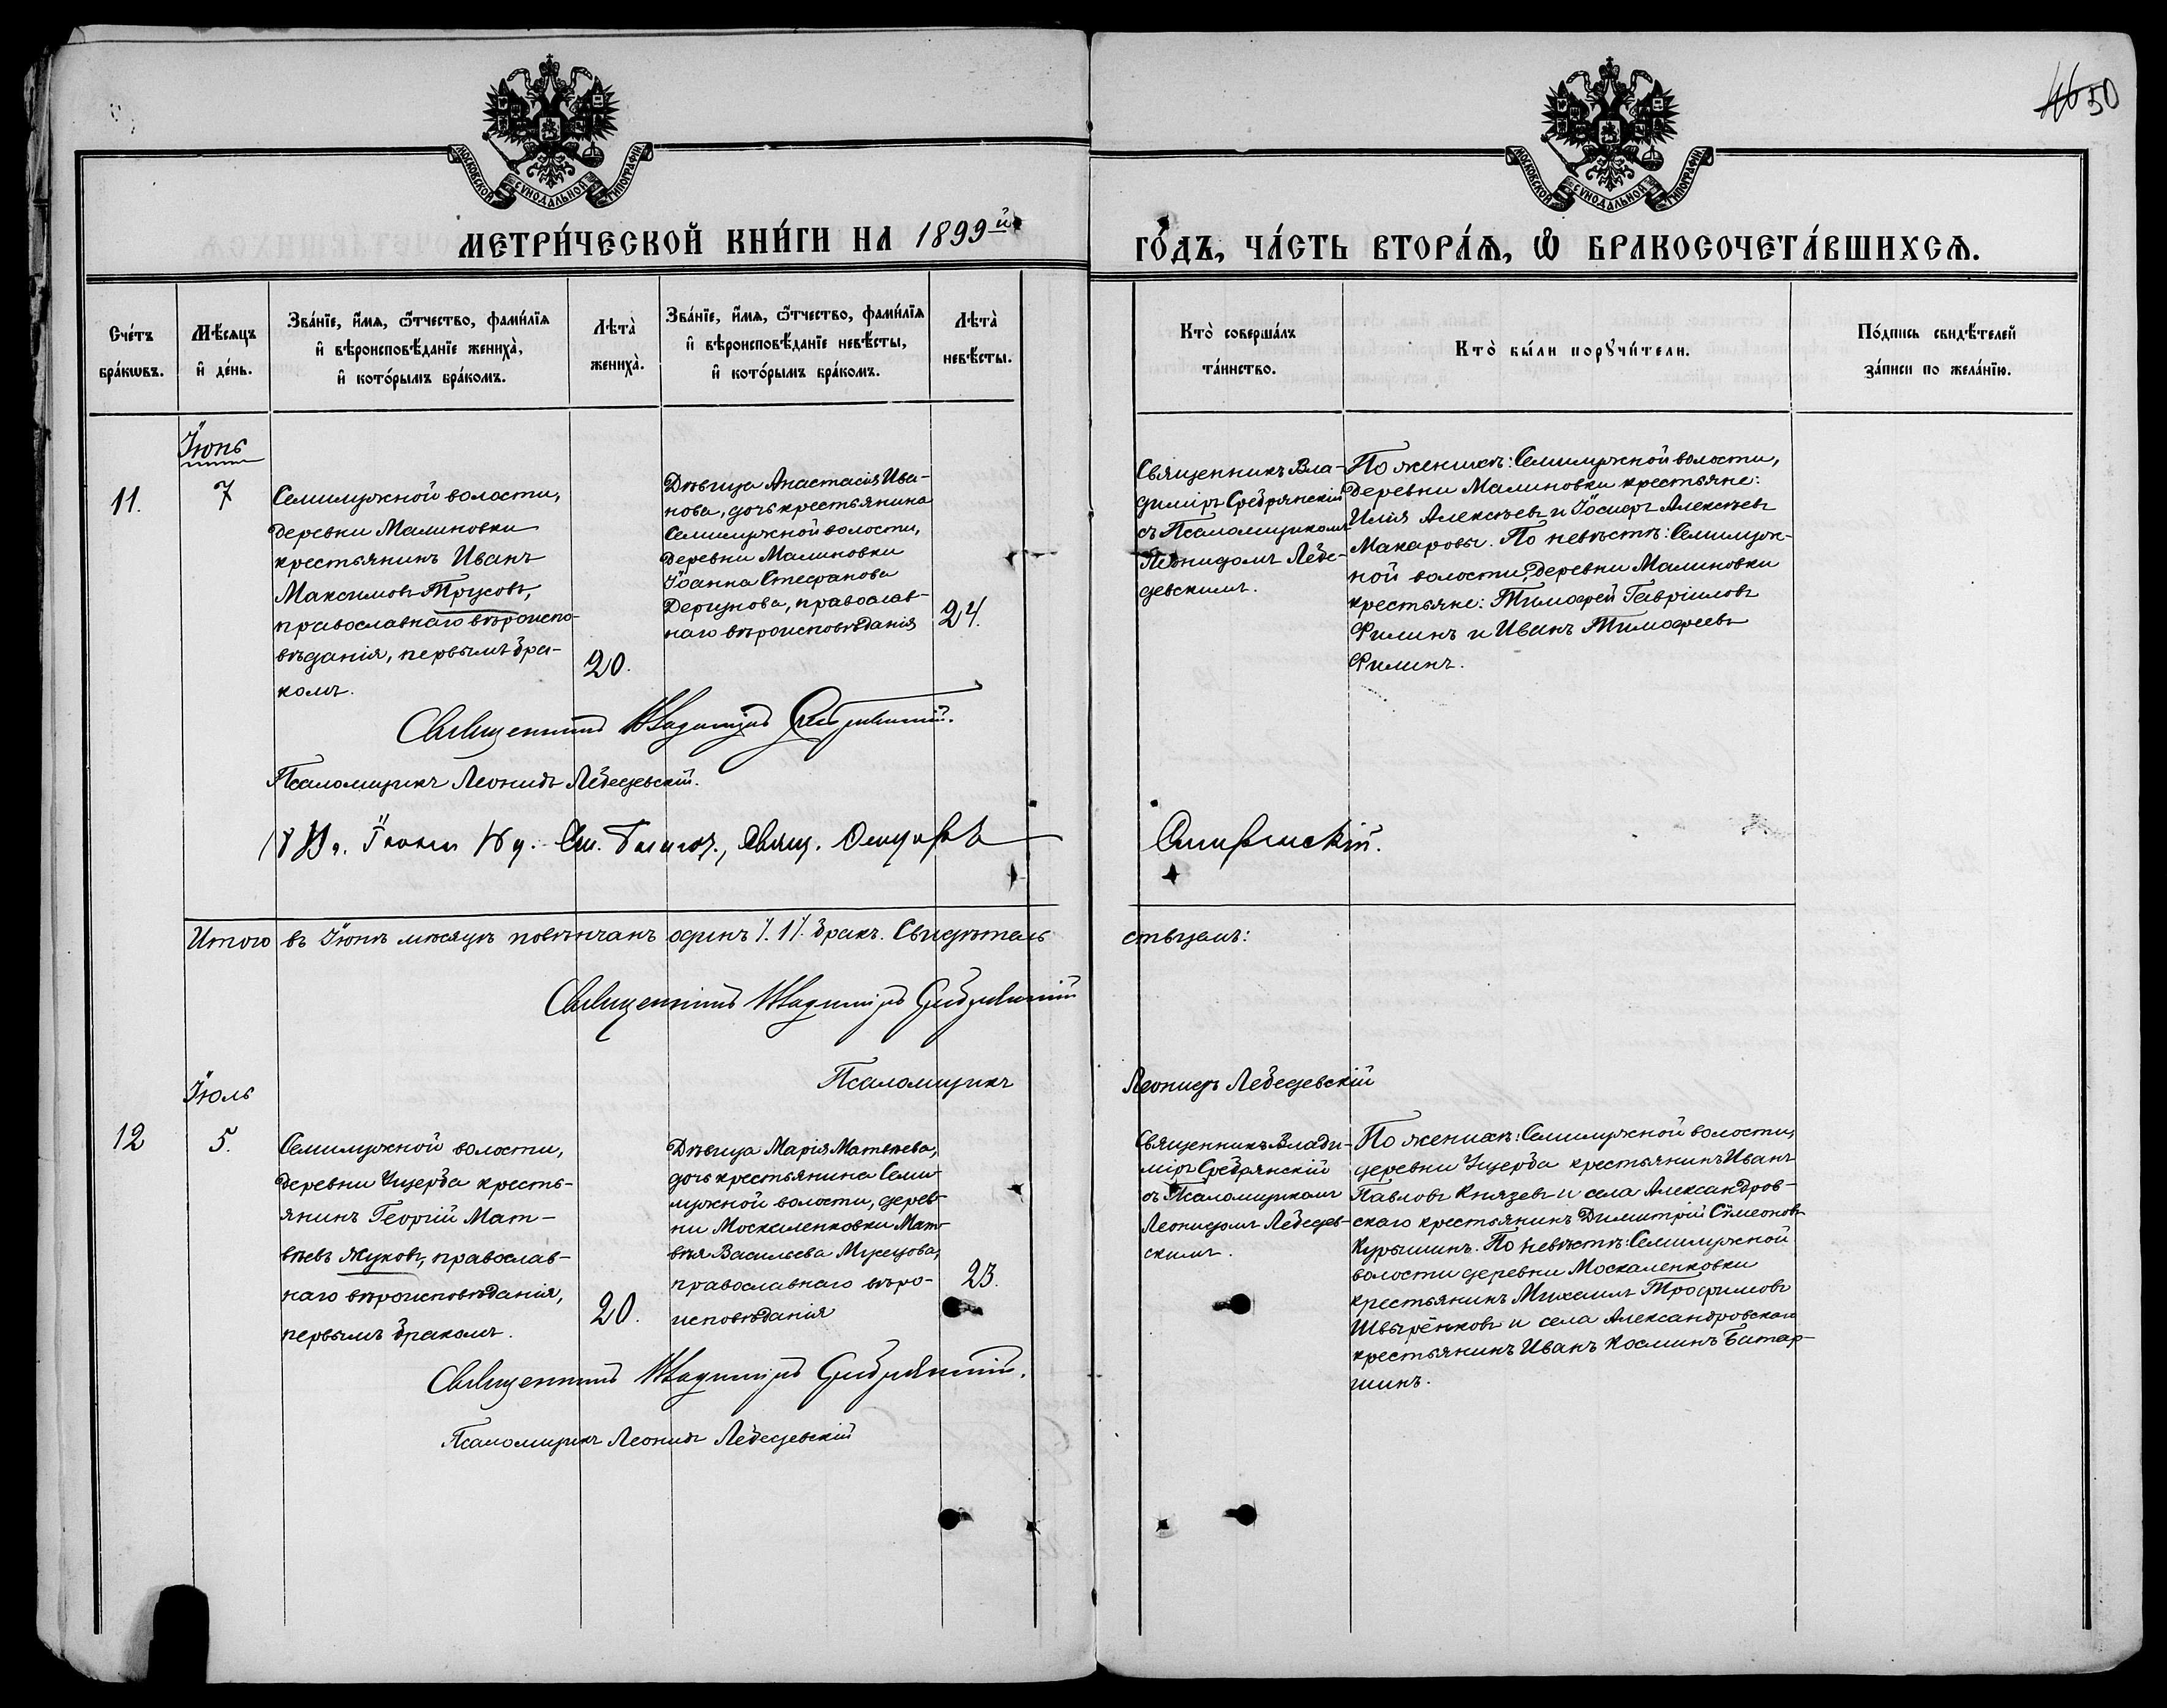 46 50
МОСКОВСКОЙ СѴНОДАЛЬНОЙ ТИПОГРАФІИ
МОСКОВСКОЙ СѴНОДАЛЬНОЙ ТИПОГРАФІИ
МЕТРИ́ЧЕСКОЙ КНИ́ГИ НА 1899й
ГО́ДЪ, ЧА́СТЬ ВТОРА́Ѧ, Ѽ БРАКОСОЧЕТА́ВШИХСѦ.
Сче́тъ
бра́кѡвъ.
Мѣ́сяцъ
и҆ де́нь.
Зва́нїе, и҆́мя, ѻ҆́тчество, фами́лїя
и҆ вѣроисповѣ́данїе жениха̀,
и҆ кото́рымъ бра́комъ.
Лѣта̀
жениха̀.
Зва́нїе, и҆́мя, ѻ҆́тчество, фами́лїя
и҆ вѣроисповѣ́данїе невѣ́сты,
и҆ кото́рымъ бра́комъ.
Лѣта̀
невѣ́сты.
Кто̀ соверша́лъ
та́инство.
Кто̀ бы́ли порꙋчи́тели.
По́дпись свидѣ́телей
за́писи по жела́нїю.
Іюнь
11.
7
Семилужной волости,
деревни Малиновки
крестьянинъ Иванъ
Максимовъ Трусовъ,
православнаго вѣроиспо-
вѣданія, первымъ бра-
комъ.
20.
Дѣвица Анастасія Ива-
нова, дочь крестьянина
Семилужной волости,
деревни Малиновки
Іоанна Стефанова
Дергунова, православ-
наго вѣроисповѣданія
24.
Священникъ Вла-
диміръ Сребрянскій
съ Псаломщикомъ
Леонидомъ Лебе-
девскимъ.
По женихѣ: Семилужной волости,
деревни Малиновки крестьяне:
Илія Алексѣевъ и Іосифъ Алексѣевъ
Макаровы. По невѣстѣ: Семилуж-
ной волости, деревни Малиновки
крестьяне: Тимофей Гавріиловъ
Филинъ и Иванъ Тимофеевъ
Филинъ.
Священникъ Владиміръ Сребрянскій.
Псаломщикъ Леонидъ Лебедевскій.
Итого въ Іюнѣ мѣсяцѣ повѣнчанъ одинъ /. 1 /. бракъ. Свидѣтель
ствуемъ:
Священникъ Владиміръ Сребрянскій
Псаломщикъ
Леонидъ Лебедевскій
Іюль
12
5.
Семилужной волости,
деревни Ущерба кресть-
янинъ Георгій Мат-
вѣевъ Жуковъ, православ-
наго вѣроисповѣданія,
первымъ бракомъ.
20.
Дѣвица Марія Матвѣева,
дочь крестьянина Семи-
лужной волости, дерев-
ни Москаленковки Мат-
вѣя Васильева
православнаго вѣро-
исповѣданія
23.
Священникъ Влади-
міръ Сребрянскій
съ Псаломщикомъ
Леонидомъ Лебедев-
скимъ.
По женихѣ: Семилужной волости,
деревни Ущерба крестьянинъ Иванъ
Павловъ Князевъ и села Александров-
скаго крестьянинъ Димитрій Сѵмеоновъ
Курышинъ. По невѣстѣ: Семилужной
волости деревни Москаленковки
крестьянинъ Михаилъ Трофимовъ
Швырёнковъ и села Александровскаго
крестьянинъ Иванъ Косминъ Батар-
шинъ.
Священникъ Владиміръ Сребрянскій.
Псаломщикъ Леонидъ Лебедевскій